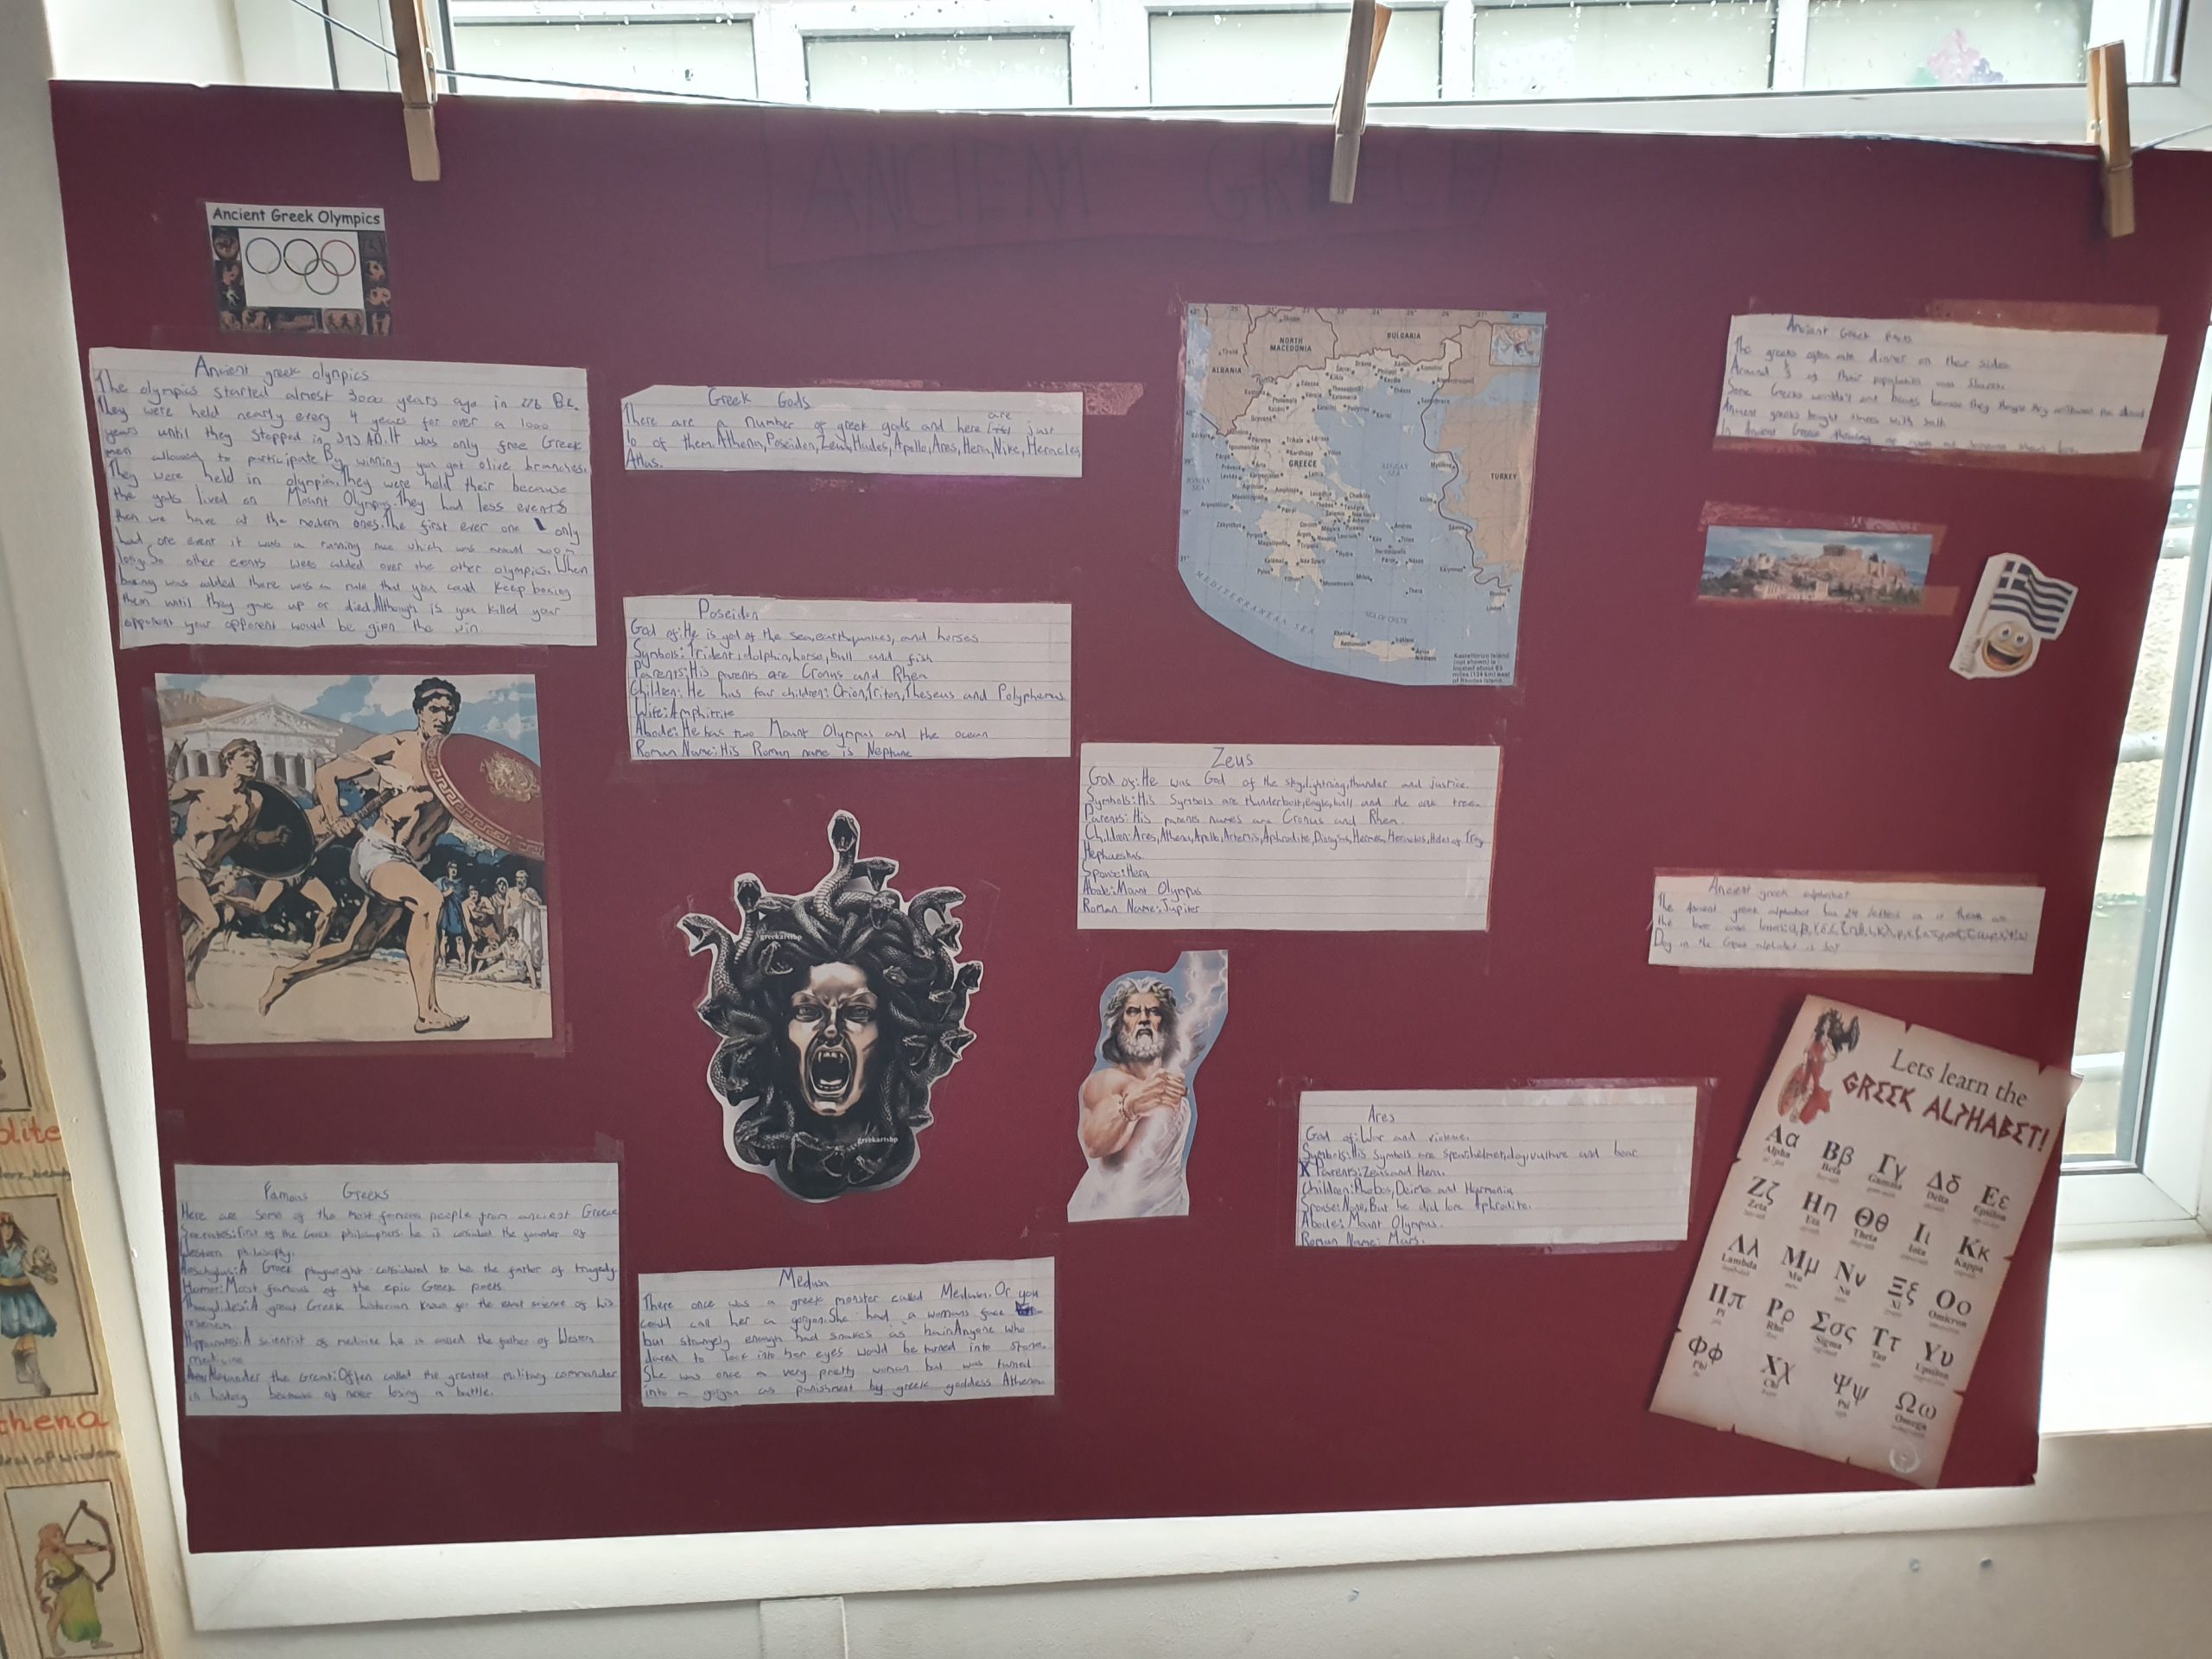 ANCIENT GREECE
Ancient Greek Olympics
Ancient greek olympics
The olympics started almost 3000 years ago in 776 BC.
They were held nearly every 4 years for over a 1000
years until they stopped in 393 AD. It was only free Greek
men allowed to participate. By winning you got olive branches.
They were held in olympia. They were held their because
the gods lived on Mount Olympus. They had less events
then we have at the modern ones. The first ever one only
had one event it was a running race which was around 200m
long. So other events were added over the other olympics. When
boxing was added there was a rule that you could keep boxing
them until they gave up or died. Although is you killed your
opponent your opponent would be given the win
Famous Greeks
Here are some of the most famous people from ancient Greece
Socrates: First of the Greek philosophers he is considered the founder of
Western philosophy.
Aeschylus: A Greek playwright considered to be the father of tragedy
Homer: Most famous of the epic Greek poets.
Thucydides: A great Greek historian known for the exact science of his
research
Hippocrates: A scientist of medicine he is called the father of Western
medicine
Alexander the Great: Often called the greatest military commander
in history because of never losing a battle.
Greek Gods
There are a number of greek gods and here are just
10 of them. Athena, Poseidon, Zeus, Hades, Apollo, Ares, Hera, Nike, Heracles,
Atlas.
Poseidon
God of: He is god of the sea, earthquakes, and horses
Symbols: Trident, dolphin, horse, bull and fish
Parents: His parents are Cronus and Rhea
Children: He has four children: Orion, Triton, Theseus and Polyphemus
Wife: Amphitrite
Abode: He has two Mount Olympus and the ocean
Roman Name: His Roman name is Neptune
greekartshp
greekartshp
Medusa
There once was a greek monster called Medusa. Or you
could call her a gorgon. She had a womans face
but strangely enough had snakes as hair. Anyone who
dared to look into her eyes would be turned into stone.
She was once a very pretty woman but was turned
into a gorgon as punishment by greek goddess Athena.
NORTH
MACEDONIA
BULGARIA
ALBANIA
GREECE
AEGEAN
SEA
TURKEY
IONIAN
SEA
MEDITERRANEAN SEA
SEA OF CRETE
Kastellorizo Island
(not shown) is
located about 83
miles (134 km) east
of Rhodes Island.
Zeus
God of: He was God of the sky, lightning, thunder and justice.
Symbols: His Symbols are thunderbolt, Eagle, bull and the oak tree.
Parents: His parents names are Cronus and Rhea.
Children: Ares, Athena, Apollo, Artemis, Aphrodite, Dionysus, Hermes, Heracles, Helen of Troy
Hephaestus.
Spouse: Hera
Abode: Mount Olympus
Roman Name: Jupiter
Ares
God of: War and violence.
Symbols: His symbols are spear, helmet, dog, vulture and boar
X Parents: Zeus and Hera.
Children: Phobos, Deimos and Harmonia
Spouse: None, But he did love Aphrodite.
Abode: Mount Olympus.
Roman Name: Mars.
Ancient Greek Facts
The greeks often ate dinner on their sides
Around of their population was Slaves.
Some Greeks wouldn't eat beans because they thought they contained the dead
Ancient greeks bought slaves with salt
In Ancient Greece throwing an apple at someone
Ancient greek alphabet
The Ancient greek alphabet has 24 letters
the lower case letters:
Dog in the Greek alphabet is
Lets learn the
GREEK ALPHABET!
Αα Ββ Γγ Δδ Εε
Alpha Beta Gamma Delta Epsilon
Ζζ Ηη Θθ Ιι Κκ
Zeta Eta Theta Iota Kappa
Λλ Μμ Νν Ξξ Οο
Lambda Mu Nu Xi Omicron
Ππ Ρρ Σσς Ττ Υυ
Pi Rho Sigma Tau Upsilon
Φφ Χχ Ψψ Ωω
Phi Chi Psi Omega
olite
thena